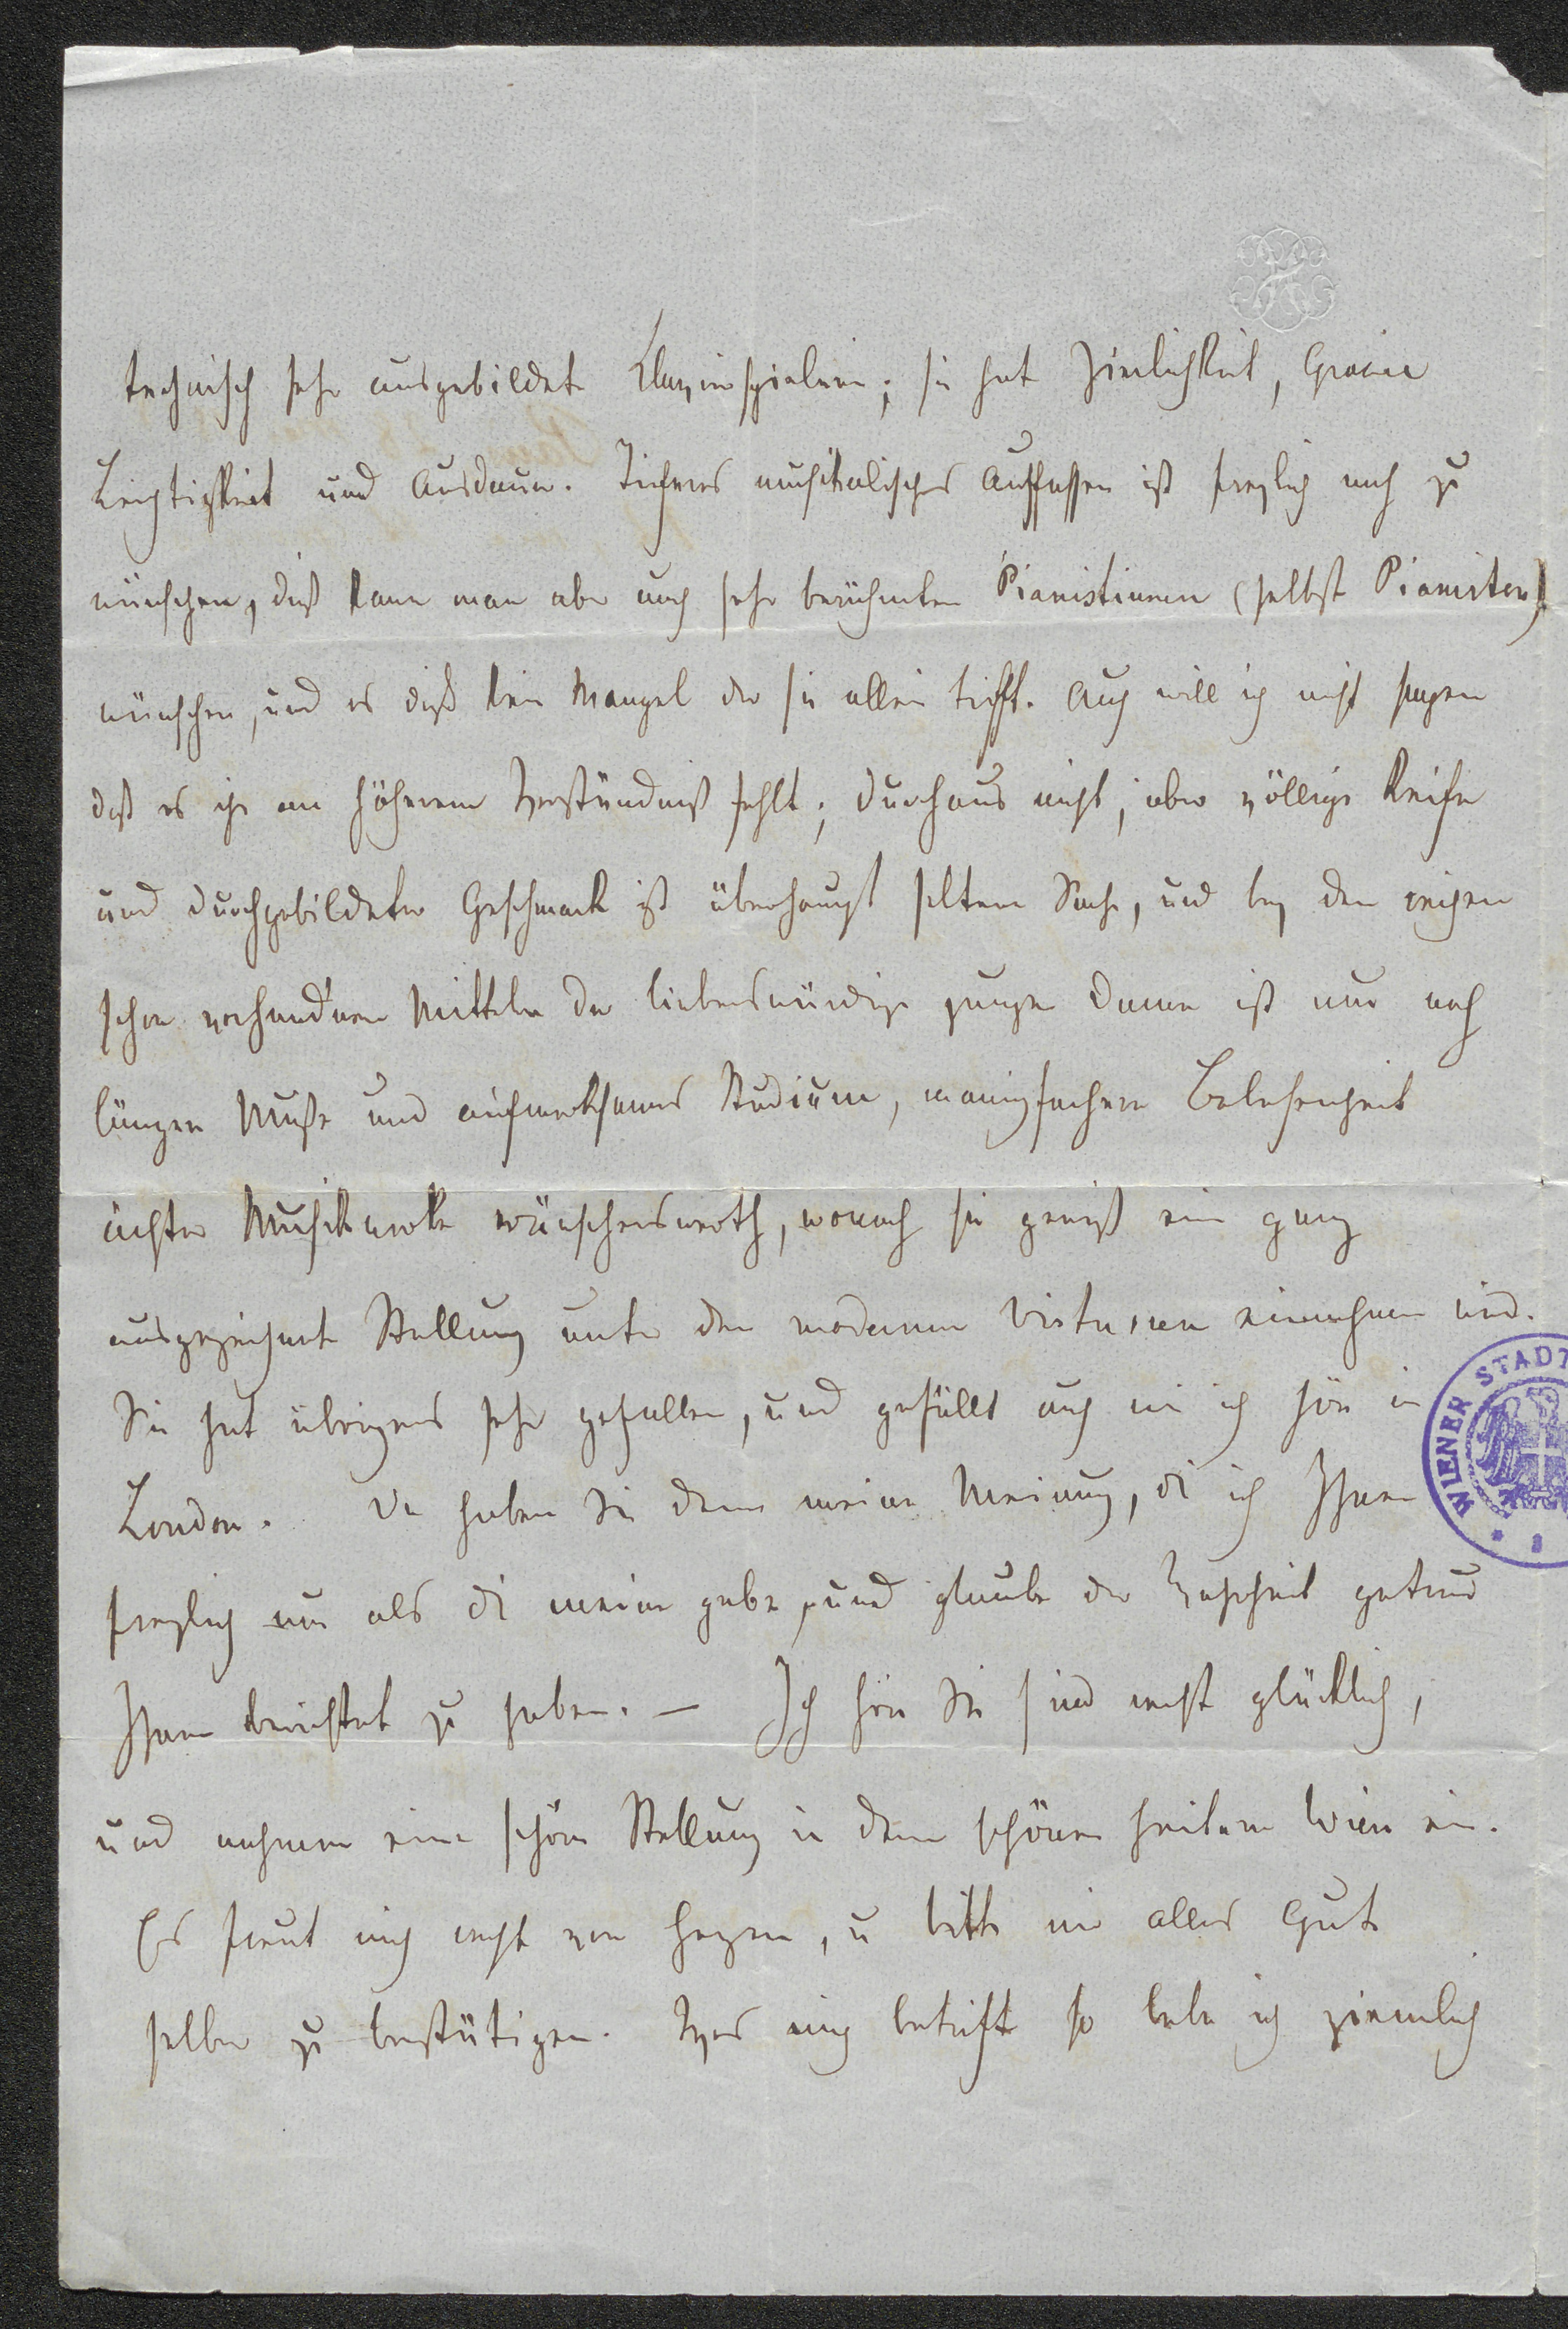 technisch sehr ausgebildete Klavierspielerin; sie hat Zierlichkeit, Gracie
Leichtigkeit und Ausdauer. Tieferes musikalisches Auffassen ist freylich noch zu
wünschen, dieß kann man aber auch sehr berühmten Pianistinnen (selbst Pianisten)
wünschen, und es dieß kein Mangel der sie allein trifft. Auch will ich nicht sagen
daß es ihr an höherem Verständniß fehlt; durchaus nicht; aber völlige Reife
und durchgebildeter Geschmack ist überhaupt seltene Sache, und bey den reichen
schon vorhand'nen Mitteln der liebenswürdige jungen Dame ist nur noch
längere Muße und aufmerksames Studium, mannigfachere Belesenheit
ächter Musikwerke wünschenswerth, wonach sie gewiß eine ganz
ausgezeichnete Stellung unter den modernen Virtuosen einnehmen wird.
Sie hat übrigens sehr gefallen, und gefällt auch wie ich höre in
London. Da haben Sie denn meine Meinung, die ich Ihnen
freylich nur als die meine gebe, und glaube der Wahrheit getreu
Ihnen berichtet zu haben. – Ich höre Sie sind recht glücklich,
und nehmen eine schöne Stellung in dem schönen heitern Wien ein.
Es freut mich recht von Herzen, u bitte mir alles Gute
selber zu bestätigen. Was mich betrift so lebe ich ziemlich
WIENER STADT